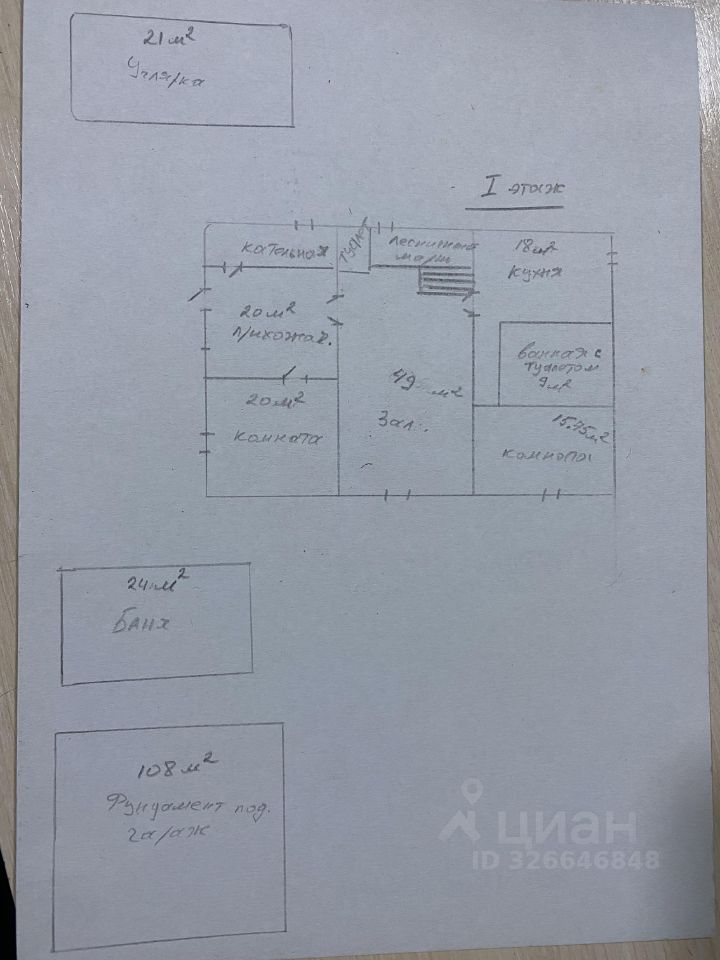 21 м²
Углярка
I этаж
кательная
туалет
лестничный
марш
18 м²
кухня
20 м²
прихожая.
ванная с
туалетом
9 м²
49 м²
Зал.
20 м²
комната
15.75 м²
комнаты
24 м²
Баня
108 м²
Фундамент под.
гараж
циан
ID 326646848